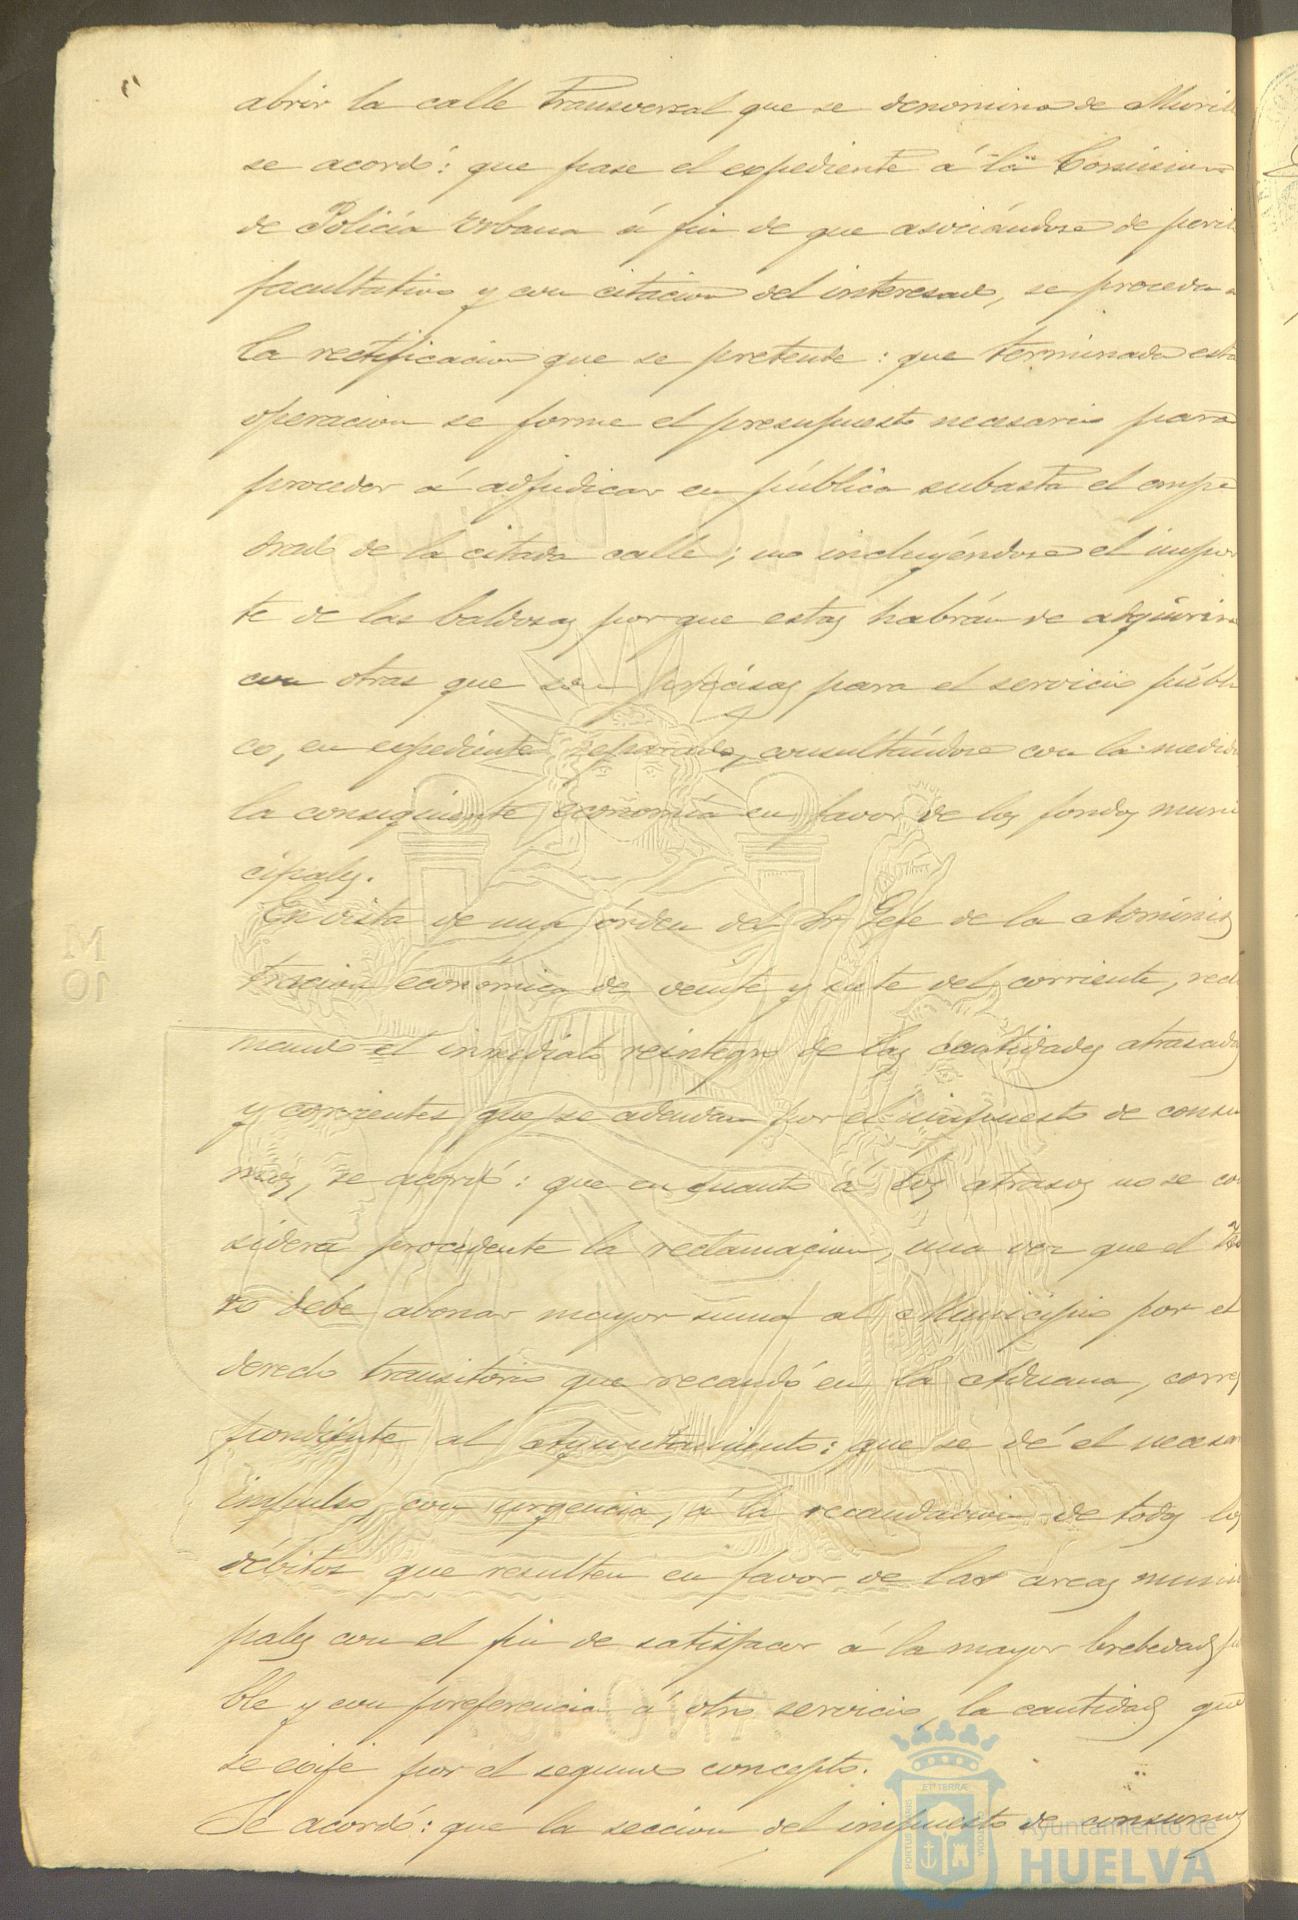 abrir la calle transversal que se denomina de Murill
se acordó: que pase el espediente á la Comision
de Policía Urbana á fin de que asociándose de perit
facultativo y con citacion del interesado, se proceda a
la rectificacion que se pretende: que terminada esta
operacion se forme el presupuesto necesario para
proceder á adjudicar en pública subasta el empe
drado de la citada calle; no incluyéndose el impor
te de las baldosas porque estas habrán de adquirirse
con otras que son precisas para el servicio públi
co, en espediente separado, consultándose con la medida
la consiguiente economía en favor de los fondos muni
cipales.
En vista de una órden del Sr Gefe de la Adminis
tracion económica de veinte y siete del corriente, recla
mando el inmediato reintegro de las cantidades atrasadas
y corrientes que se adeudan por el impuesto de consu
mos, se acordó: que en cuanto á los atrasos no se con
sidera procedente la reclamacion, una vez que el Teso
ro debe abonar mayor suma al Municipio por el
derecho transitorio que recaudó en la Aduana, corres
pondiente al Ayuntamiento: que se dé el necesario
impulso, con urgencia, á la recaudacion de todos los
débitos que resulten en favor de las arcas munici
pales con el fin de satisfacer á la mayor brebedad posi
ble y con preferencia á otro servicio, la cantidad que
se exije por el segundo concepto.
Se acordó: que la seccion del impuesto de consumos
M
10
PORTUS MARIS
ET TERRÆ
CUSTODIA
Ayuntamiento de
HUELVA